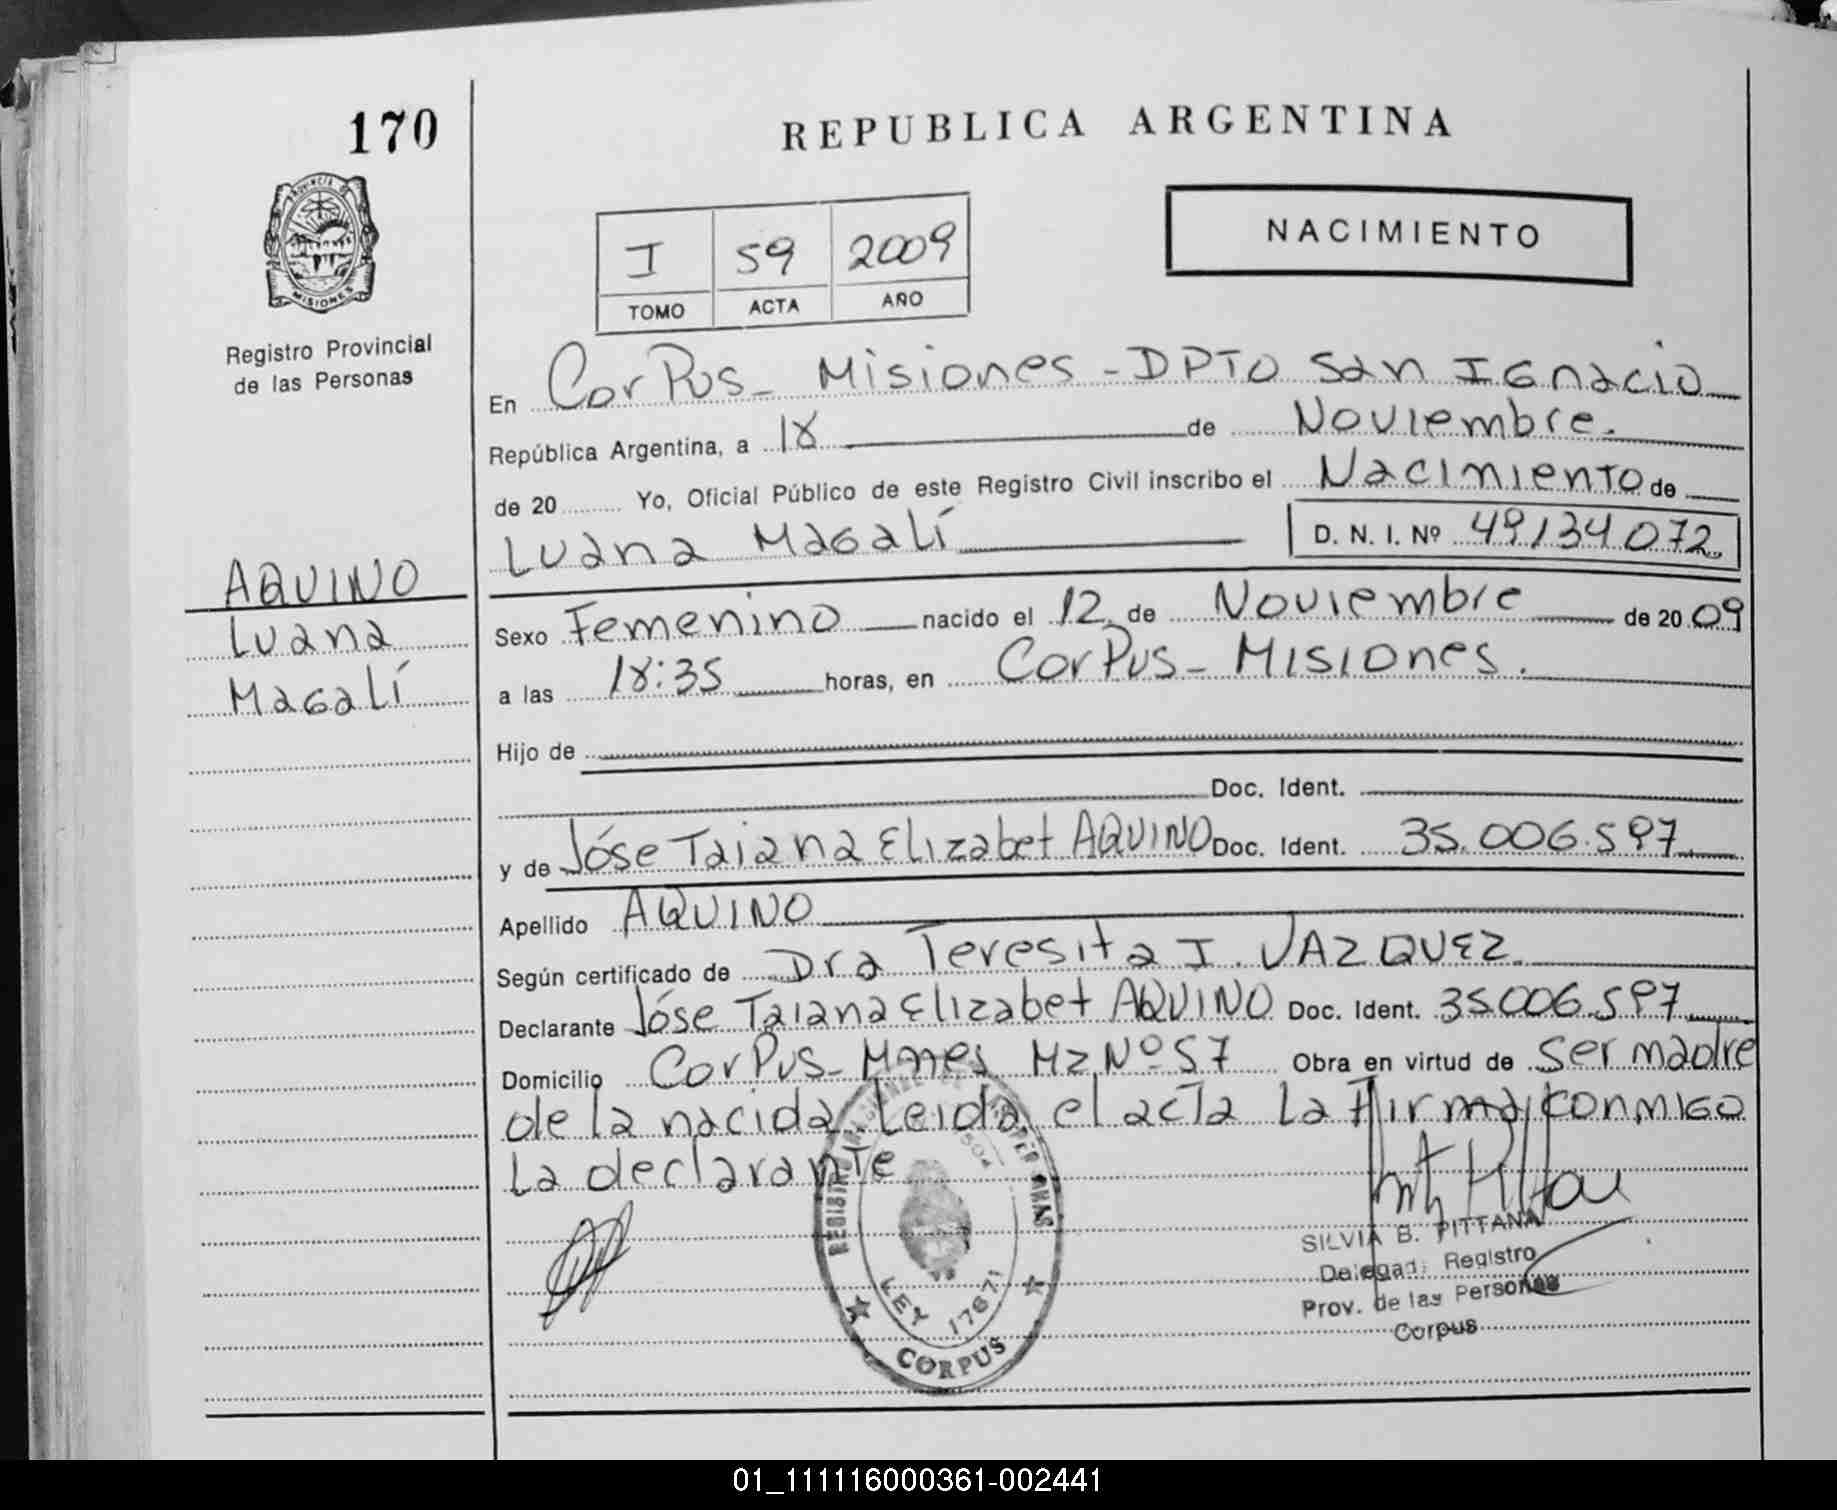 170
REPUBLICA ARGENTINA
PROVINCIA DE
MISIONES
Registro Provincial
de las Personas
I 59 2009
TOMO ACTA AÑO
NACIMIENTO
En CorPus - Misiones - DPTO San Ignacio
República Argentina, a 18 de Noviembre.
de 20 Yo, Oficial Público de este Registro Civil inscribo el Nacimiento de
Luana Magalí D. N. I. Nº 49134072
AQUINO
Luana
Magalí
Sexo Femenino nacido el 12 de Noviembre de 20 09
a las 18:35 horas, en CorPus - Misiones.
Hijo de
Doc. Ident.
y de Jóse Taiana Elizabet AQUINO Doc. Ident. 35.006.597
Apellido AQUINO
Según certificado de Dra Teresita I. VAZQUEZ
Declarante Jóse Taiana Elizabet AQUINO Doc. Ident. 35.006.597
Domicilio CorPus - Mnes Mz Nº 57 Obra en virtud de ser madre
de la nacida. Leida el acta La Firma conmigo
La declarante
LEY 17671
CORPUS
SILVIA B. PITTANA
Delegad. Registro
Prov. de las Personas
Corpus
01_111116000361-002441